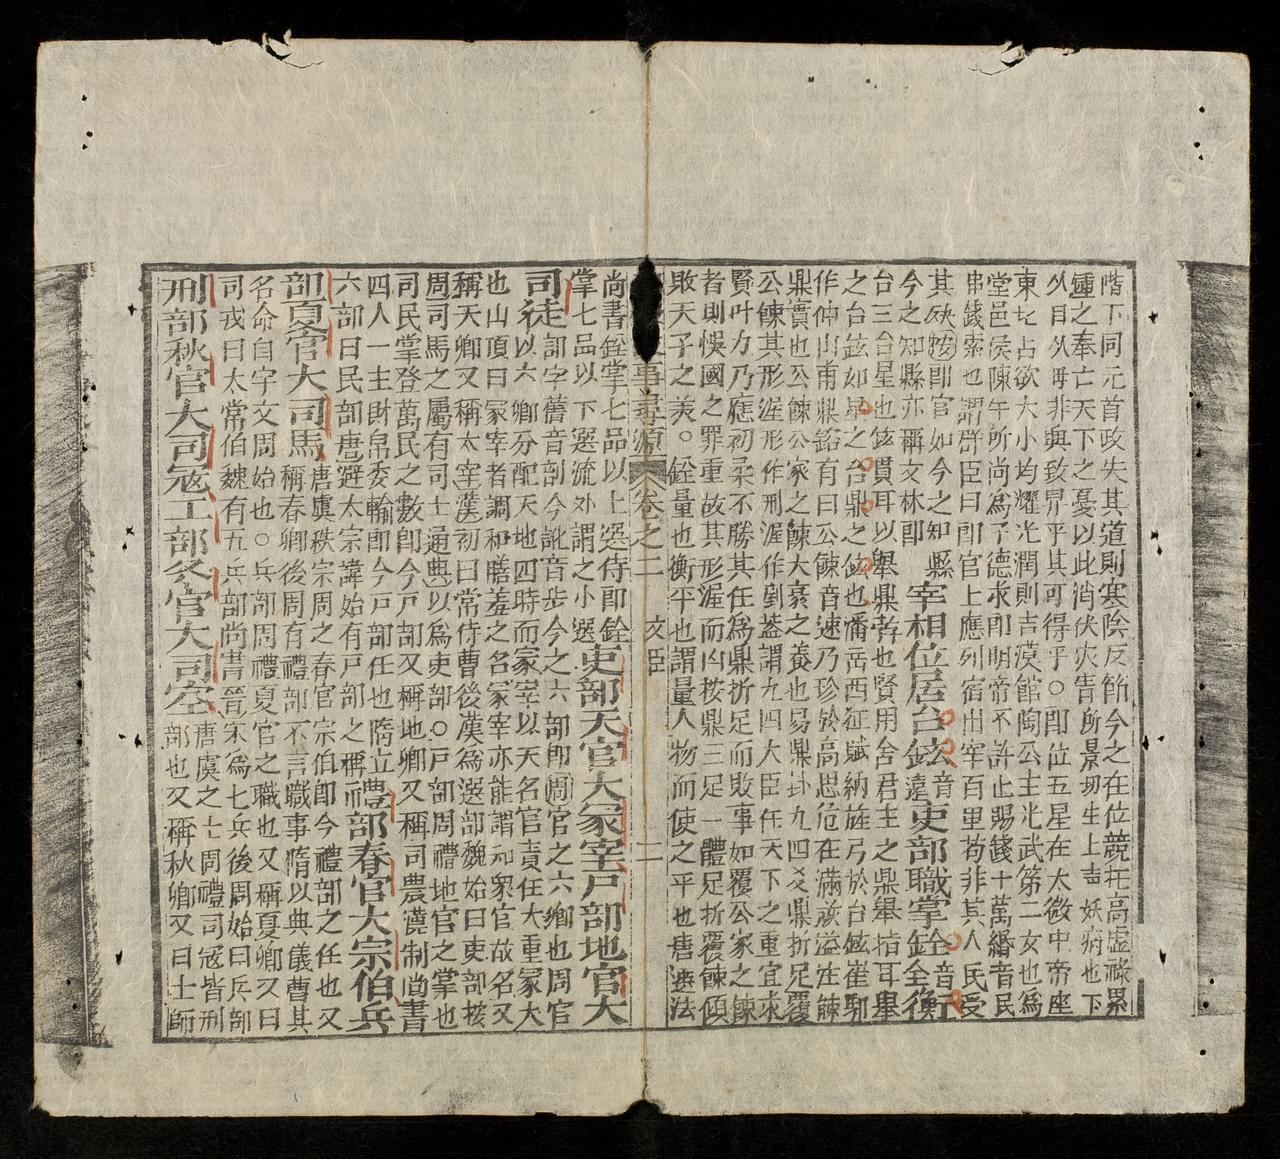 階下同元首政失其道則寒陰反節今之在位競托高虛祿累
鍾之奉亡天下之憂以此消伏灾眚所景切生上吉妖病也下
非與致昇乎其可得乎○郎位五星在太微中帝座
東北占欲大小均耀光潤則吉漢館陶公主光武第二女也為
堂邑侯陳午所尚為子德求郎明帝不許止賜錢十萬緡音民
串錢索也謂群臣曰郎官上應列宿出宰百里苟非其人民受
其殃按郎官如今之知縣
今之知縣亦稱文林郎
宰相位居台鉉音遠吏部職掌銓音全衡音行
台三台星也鉉貫耳以舉鼎者也賢用舍君主之鼎舉指耳舉
之台鉉如星之台鼎之鉉也潘岳西征賦納旌弓於台鉉崔駰
作仲山甫鼎銘有曰公餗音速乃珍於高思危在滿戒溢在餗
鼎實也公餗公家之餗大烹之養也易鼎卦九四爻鼎折足覆
公餗其形渥形作刑渥作剭葢謂九四大臣任天下之重宜求
賢叶力乃應初柔不勝其任為鼎折足而敗事如覆公家之餗
者則悞國之罪重故其形渥而凶按鼎三足一體足折覆餗傾
敗天子之美○銓量也衡平也謂量人物而使之平也唐選法
事尋源 卷之二 文臣 二
尚書銓掌七品以上選侍郎銓
掌七品以下選流外謂之小選
吏部天官大冢宰戶部地官大
司徒
部字舊音剖今訛音步今之六部即周官之六鄉也周官
以六鄉分配天地四時而冢宰以天名官責任大重冢大
也山頂曰冢宰者調和膳羞之名冢宰亦能調和眾官故名又
稱天卿又稱太宰漢初曰常侍曹後漢為選部魏始曰吏部按
周司馬之屬有司士通典以為吏部○戶部周禮地官之掌也
司民掌登萬民之數即今戶部又稱地卿又稱司農漢制尚書
四人一主財帛委輸即今戶部任也隋立
六部曰民部唐避太宗諱始有戶部之稱
禮部春官大宗伯兵
部夏官大司馬
唐虞秩宗周之春官宗伯即今禮部之任也又
稱春卿後周有禮部不言職事隋以典儀曹其
名命自宇文周始也○兵部周禮夏官之職也又稱夏卿又曰
司戎曰太常伯魏有五兵部尚書晉宋為七兵後周始曰兵部
刑部秋官大司寇工部冬官大司空
唐虞之士周禮司冦皆刑
部也又稱秋卿又曰士師